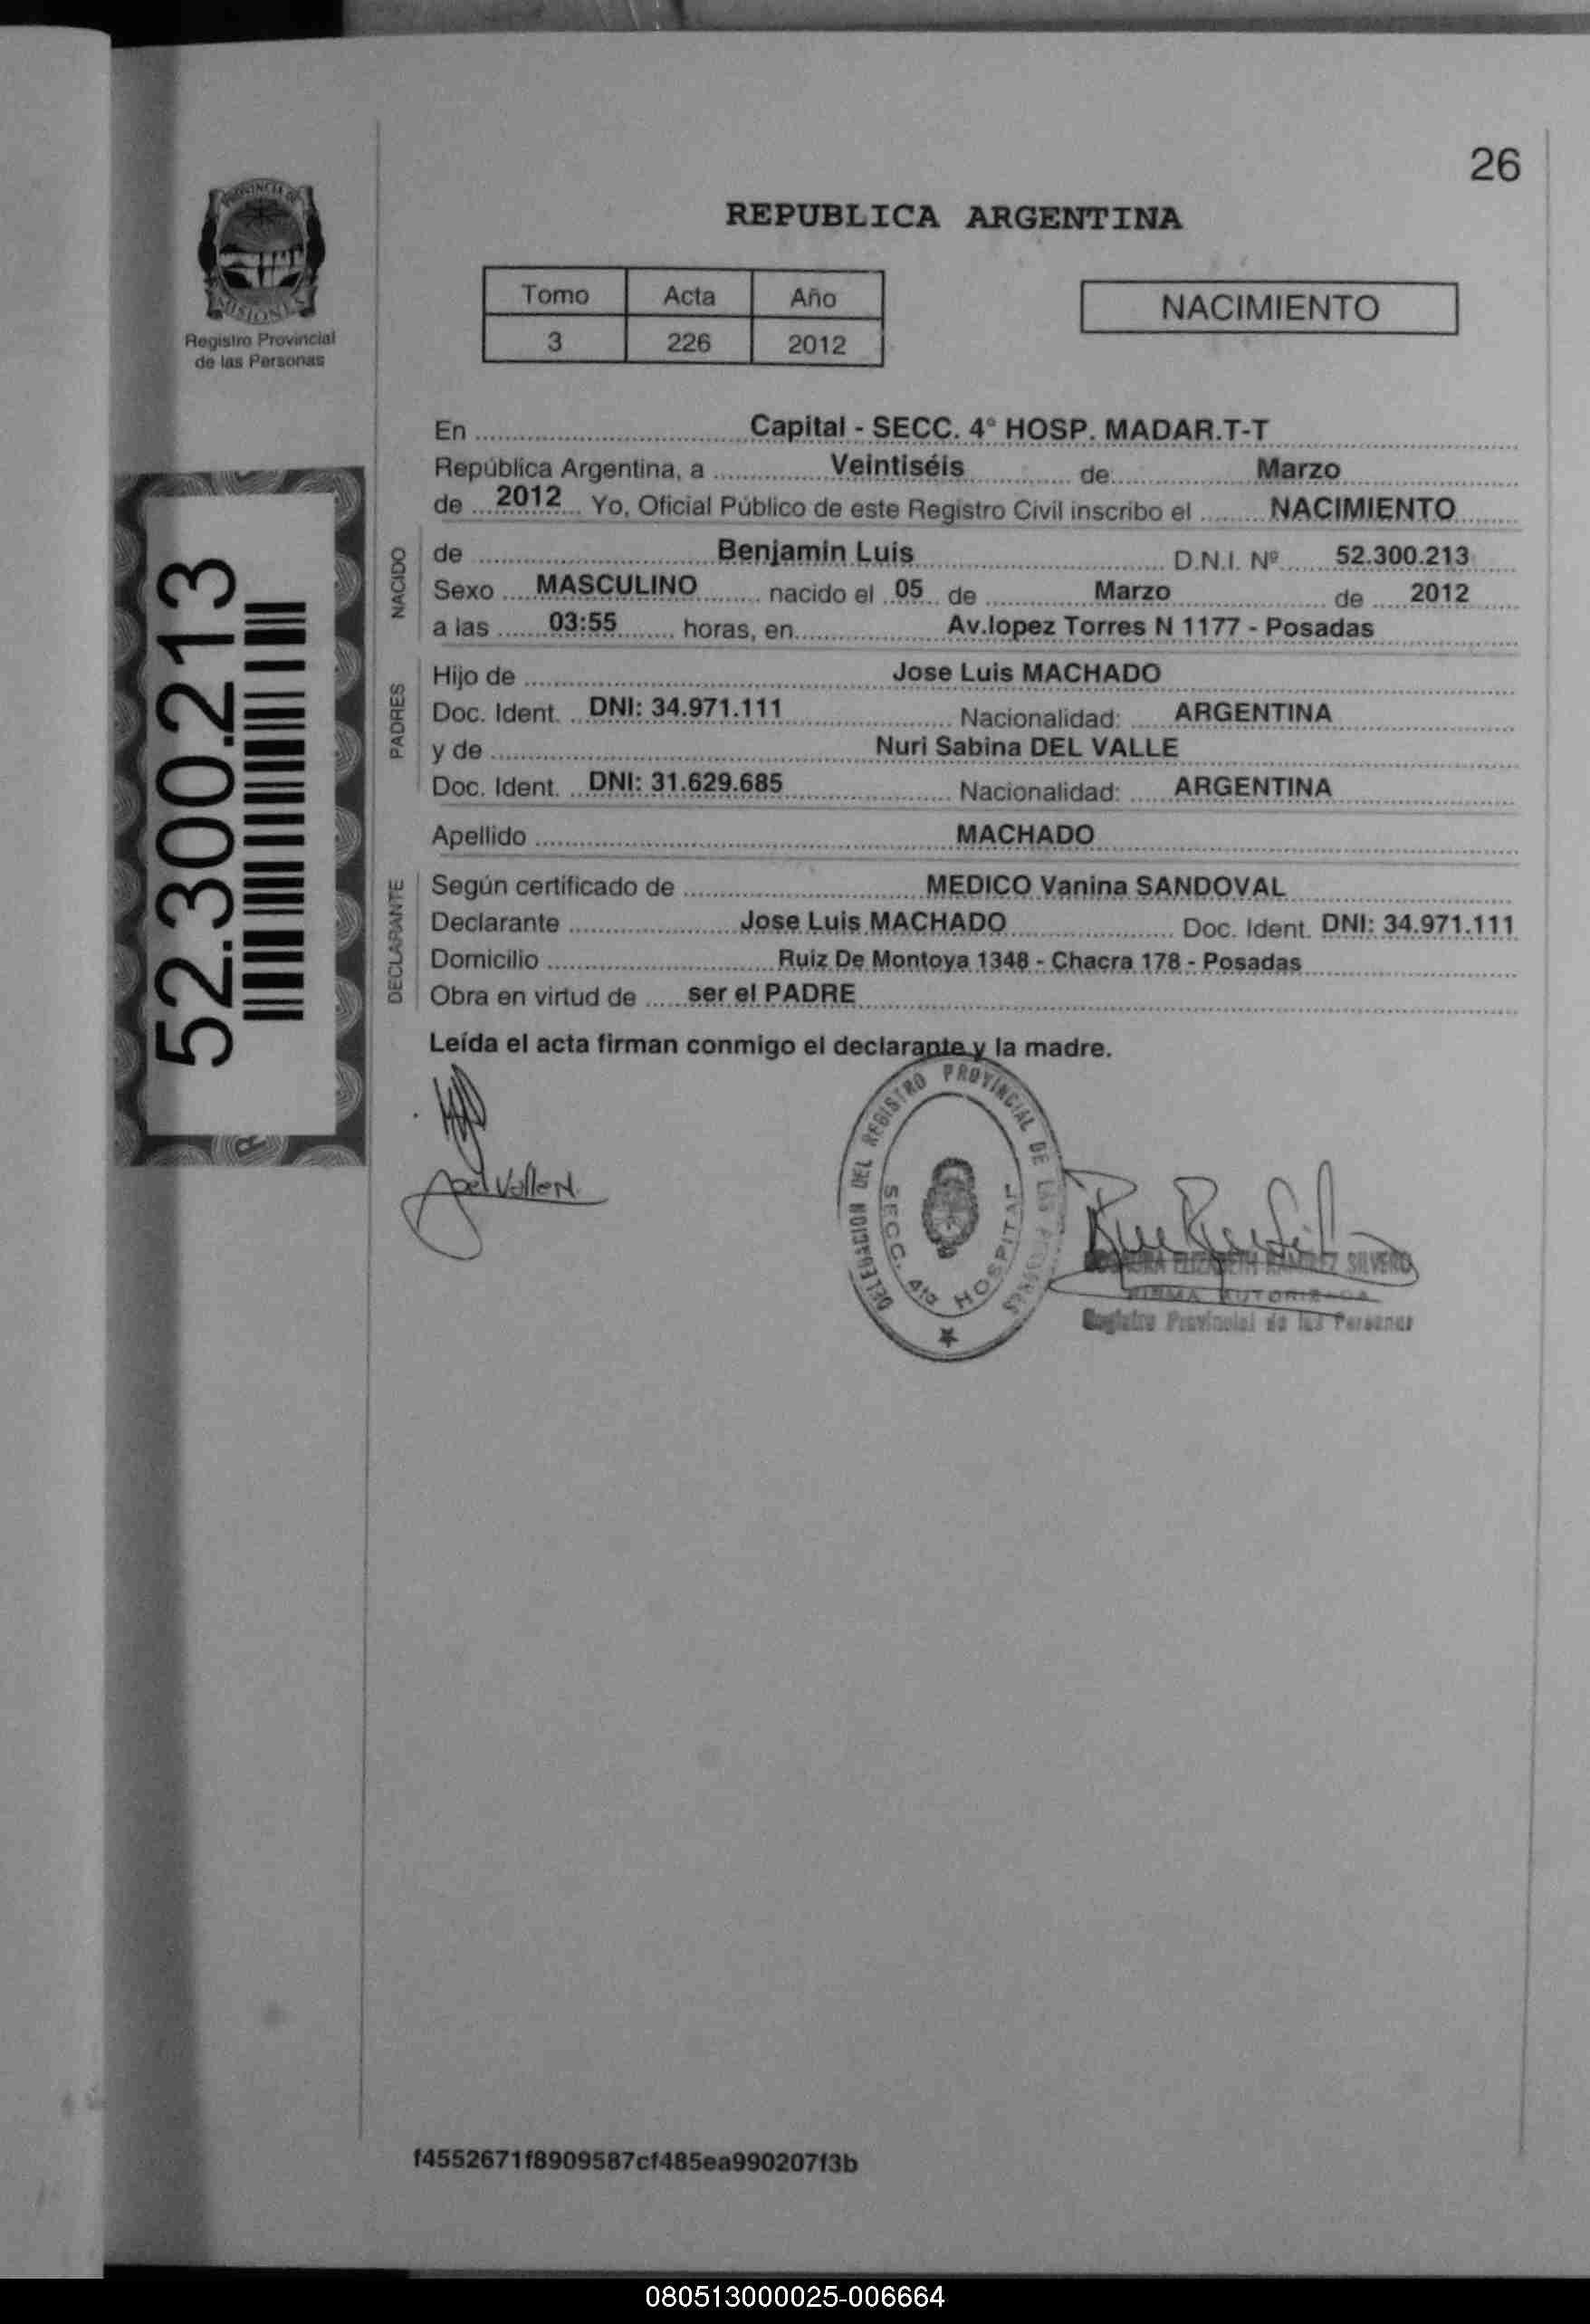 26
PROVINCIA DE
MISIONES
Registro Provincial
de las Personas
REPUBLICA ARGENTINA
Tomo Acta Año
3 226 2012
NACIMIENTO
52.300.213
En Capital - SECC. 4° HOSP. MADAR.T-T
República Argentina, a Veintiséis de Marzo
de 2012 Yo, Oficial Público de este Registro Civil inscribo el NACIMIENTO
NACIDO
de Benjamin Luis D.N.I. Nº 52.300.213
Sexo MASCULINO nacido el 05 de Marzo de 2012
a las 03:55 horas, en Av.lopez Torres N 1177 - Posadas
PADRES
Hijo de Jose Luis MACHADO
Doc. Ident. DNI: 34.971.111 Nacionalidad: ARGENTINA
y de Nuri Sabina DEL VALLE
Doc. Ident. DNI: 31.629.685 Nacionalidad: ARGENTINA
Apellido MACHADO
DECLARANTE
Según certificado de MEDICO Vanina SANDOVAL
Declarante Jose Luis MACHADO Doc. Ident. DNI: 34.971.111
Domicilio Ruiz De Montoya 1348 - Chacra 178 - Posadas
Obra en virtud de ser el PADRE
Leída el acta firman conmigo el declarante y la madre.
DELEGACION DEL REGISTRO PROVINCIAL DE LAS PERSONAS
SECC. 4ta HOSPITAL
ELIZABETH RAMIREZ SILVERO
FIRMA AUTORIZADA
Registro Provincial de las Personas
f4552671f8909587cf485ea990207f3b
080513000025-006664